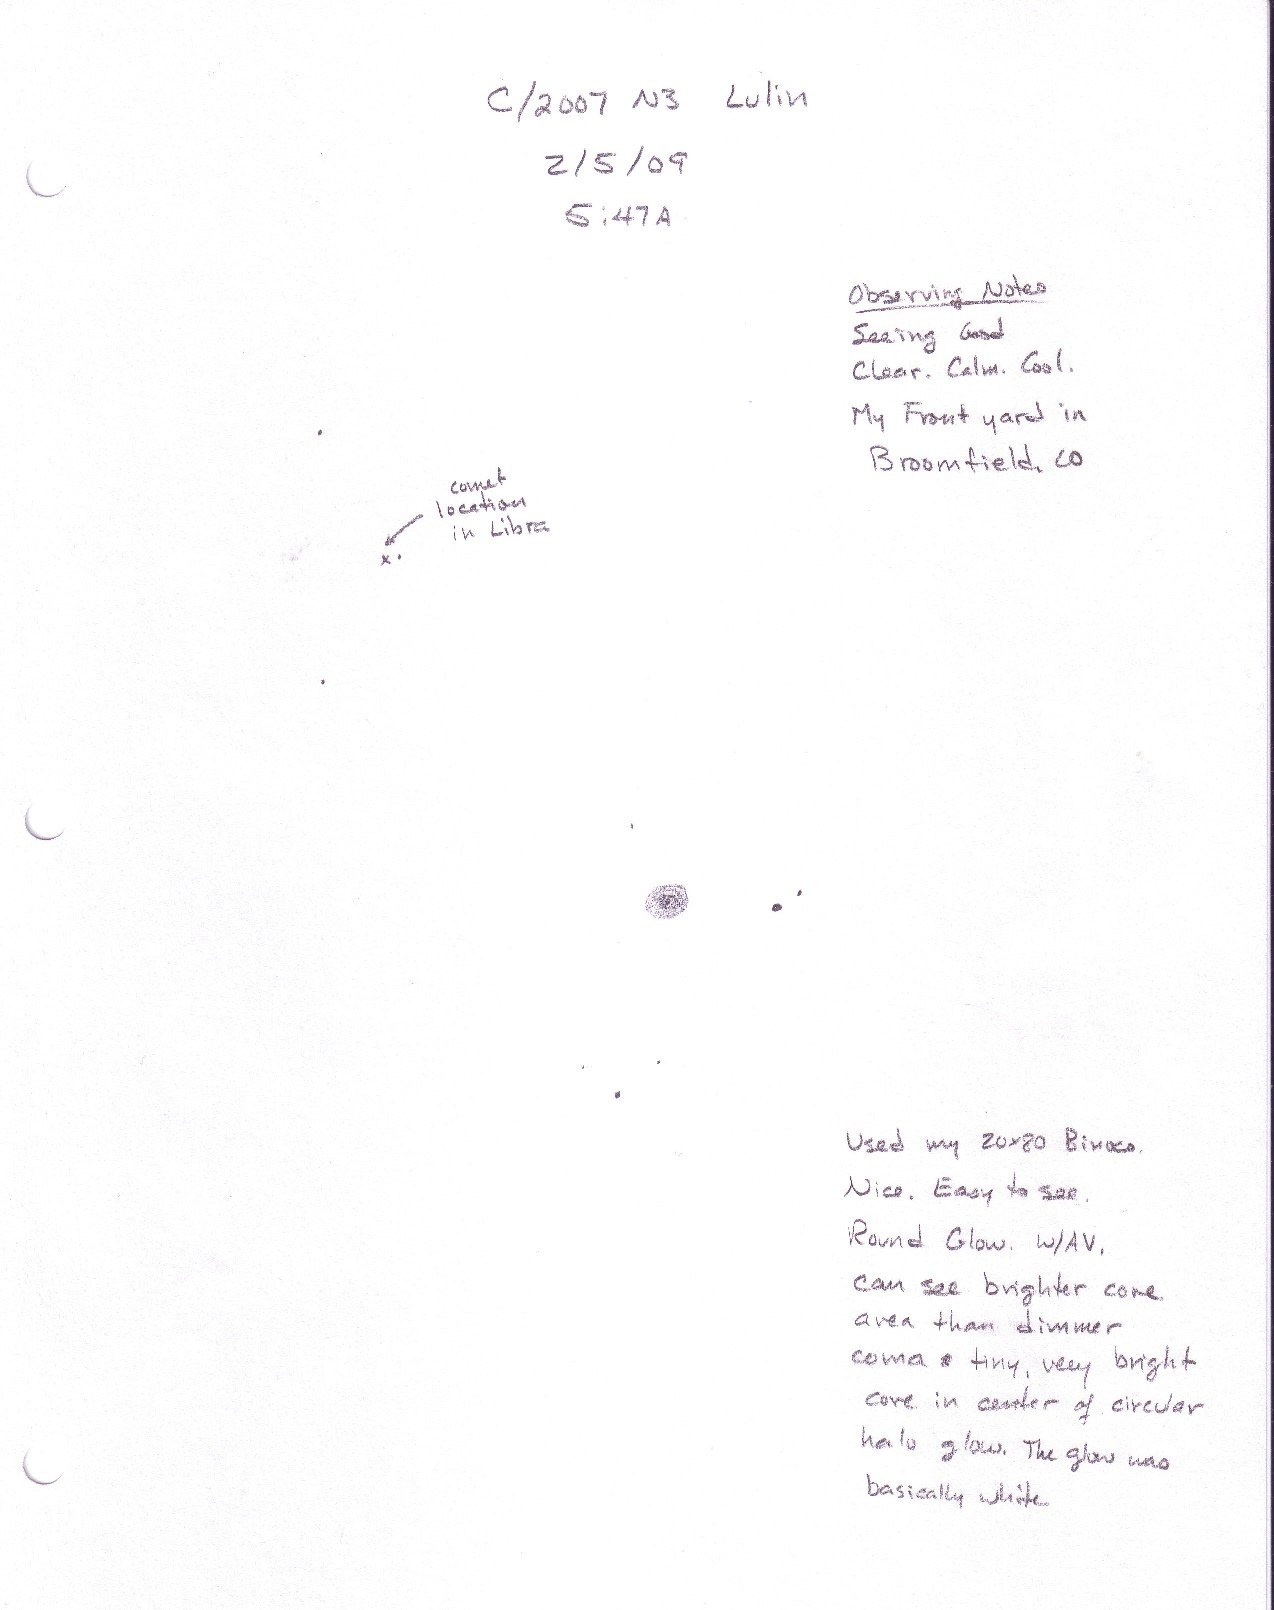 C/2007 N3 Lulin
2/5/09
5:47A
Observing Notes
Seeing Good
Clear. Calm. Cool.
My Front yard in
Broomfield, CO
comet
location
in Libra
x.
Used my 20x80 Binocs.
Nice. Easy to see.
Round Glow. W/AV,
can see brighter core
area than dimmer
coma & tiny, very bright
core in center of circular
halo glow. The glow was
basically white